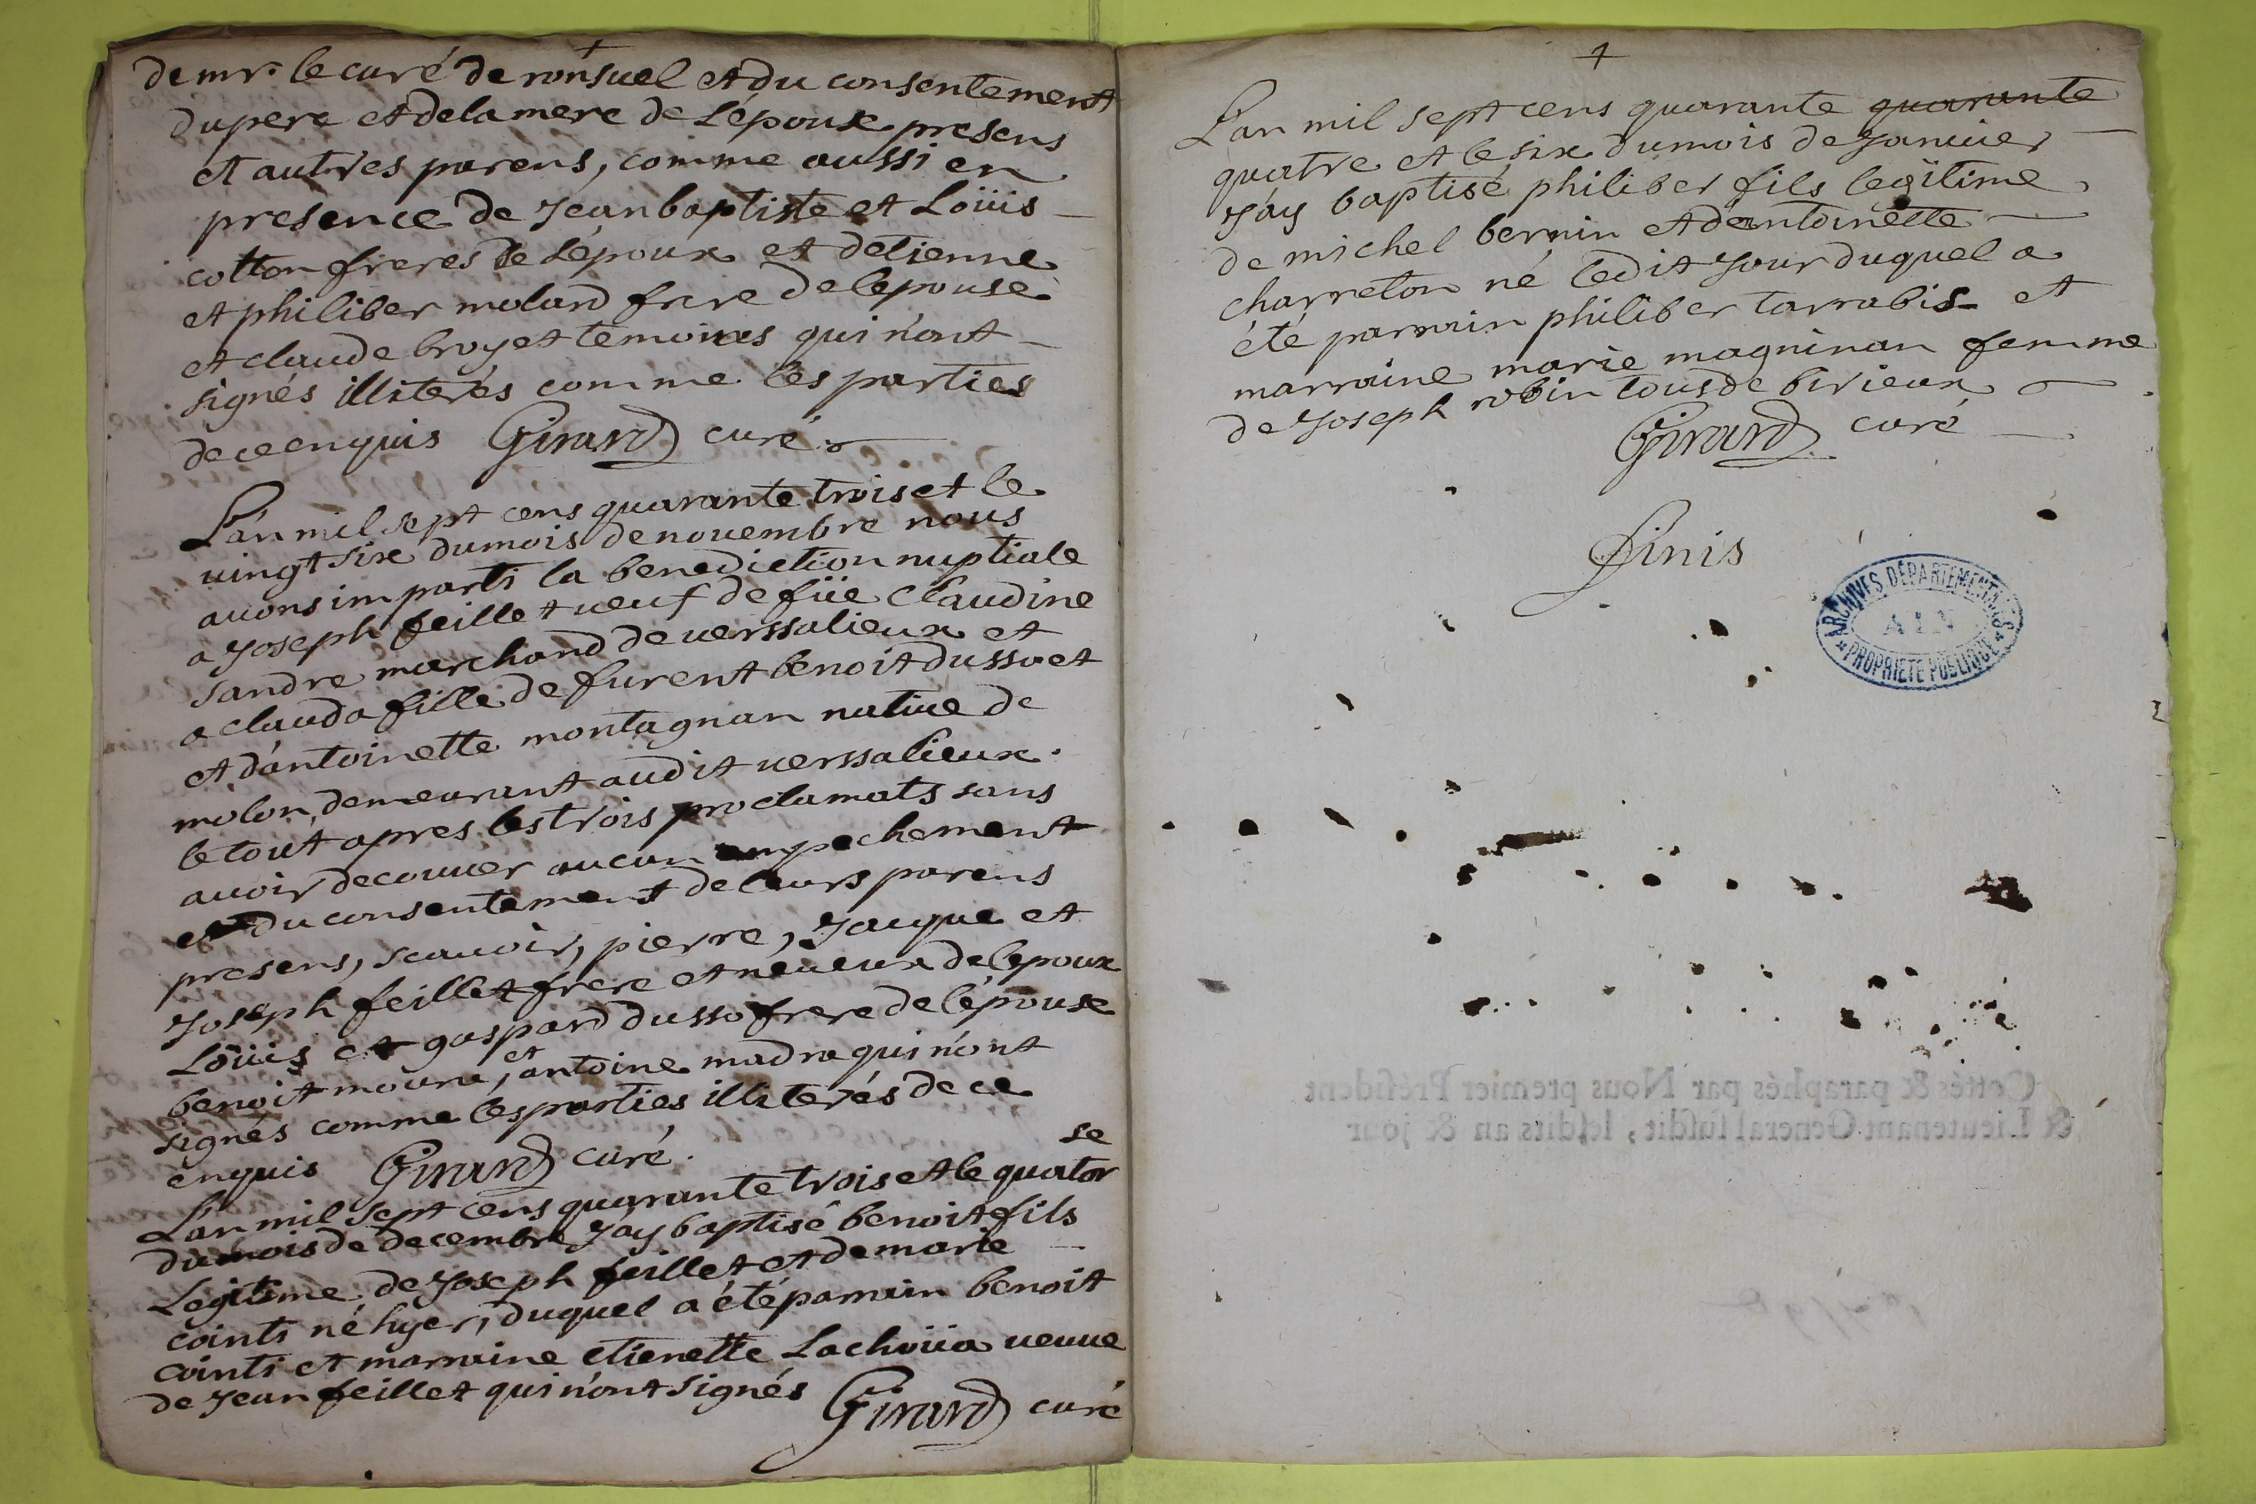 de mr. le curé de ronsuel et du consentement
du pere et de la mere de l'époux presens
et autres parens, comme aussi en
presence de Jean baptiste et Loüis
cotton freres de l'époux et d'etienne
et philiber molard frere de lepouse
et claude broyet temoins qui n'ont
signés illiterés comme les parties
de ce enquis Girard curé
L'an mil sept cens quarante trois et le
vingt six du mois de novembre nous
avons imparti la benediction nuptiale
a Joseph feillet veuf de füe Claudine
sandre marchand de verssalieux et
a clauda fille de furent benoit dusso et
et d'antoinette montagnan native de
molon, demeurant audit verssalieux.
le tout apres les trois proclamats sans
avoir decouver aucun empechement
et du consentement de leurs parens
presens, scavoir, pierre, Jaque et
Joseph feillet frere et neveux de lepoux
Loüis et gaspard dusso frere de l'épouse
benoit moune, et antoine madra qui n'ont
signés comme les parties illiterés de ce
enquis Girard curé.
L'an mil sept cens quarante trois et le quatorse
du mois de decembre J'ay baptisé benoit fils
Legitime de Joseph feillet et de marie
cointi né hyer, duquel a été parrain benoit
cointi et marraine etienette Lachoüa veuve
de Jean feillet qui n'ont signés Girard curé
L'an mil sept cens quarante quarante
quatre et le six du mois de Janvier
J'ay baptisé philiber fils legitime
de michel bernin et d'antoinette
charreton né ledit Jour duquel a
été parrain philiber tarrabis et
marraine marie magninan femme
de Joseph robin tous de birieux
Girard curé
finis
ARCHIVES DÉPARTEMENTALES
AIN
PROPRIÉTÉ PUBLIQUE
Cottés & paraphés par Nous premier Président
& Lieutenant General susdit, lesdits an & jour